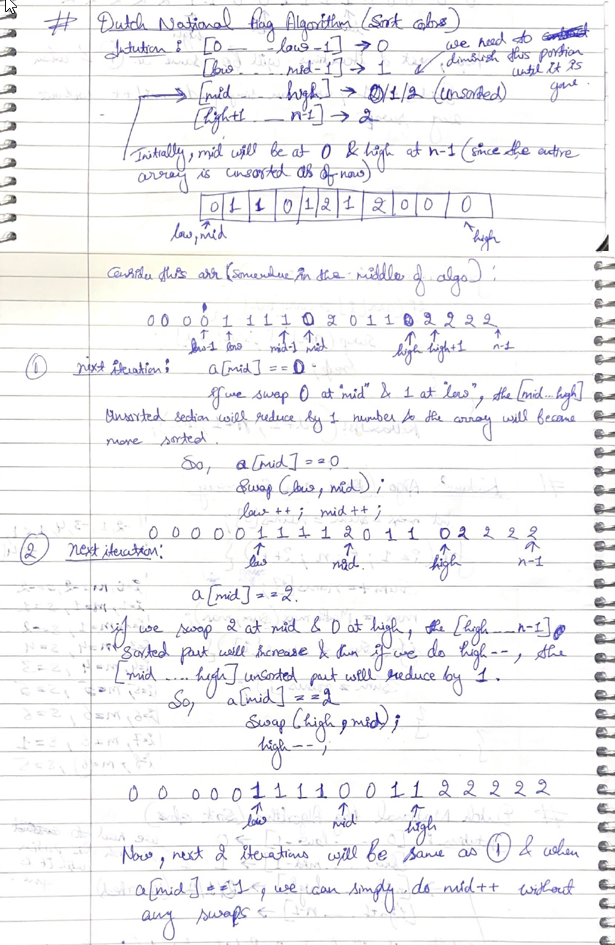 # Dutch National flag Algorithm (Sort colors)
Intution : [0 _ _ _ low-1] → 0
we need to
diminish this portion
until it is
gone.
[low ... mid-1] → 1
[mid .... high] → 0/1/2 (unsorted)
[high+1 ... n-1] → 2
Initially, mid will be at 0 & high at n-1 (since the entire
array is unsorted as of now)
0 1 1 0 1 2 1 2 0 0 0
low, mid
high
Consider this arr (somewhere in the middle of algo) :
0 0 0 0 1 1 1 1 0 2 0 1 1 0 2 2 2 2
low-1 low mid-1 mid high high+1 n-1
① next iteration: a[mid] == 0
if we swap 0 at "mid" & 1 at "low", the [mid...high]
Unsorted section will reduce by 1 number so the array will become
more sorted.
So, a[mid] == 0
swap (low, mid) ;
low ++ ; mid ++ ;
0 0 0 0 0 1 1 1 1 2 0 1 1 0 2 2 2 2
low mid high n-1
② next iteration:
a[mid] == 2.
if we swap 2 at mid & 0 at high, the [high ... n-1]
Sorted part will increase & then if we do high--, the
[mid .... high] unsorted part will reduce by 1.
So, a[mid] == 2
swap (high, mid) ;
high -- ;
0 0 0 0 0 1 1 1 1 0 0 1 1 2 2 2 2 2
low mid high
Now, next 2 iterations will be same as ① & when
a[mid] == 1, we can simply do mid++ without
any swaps